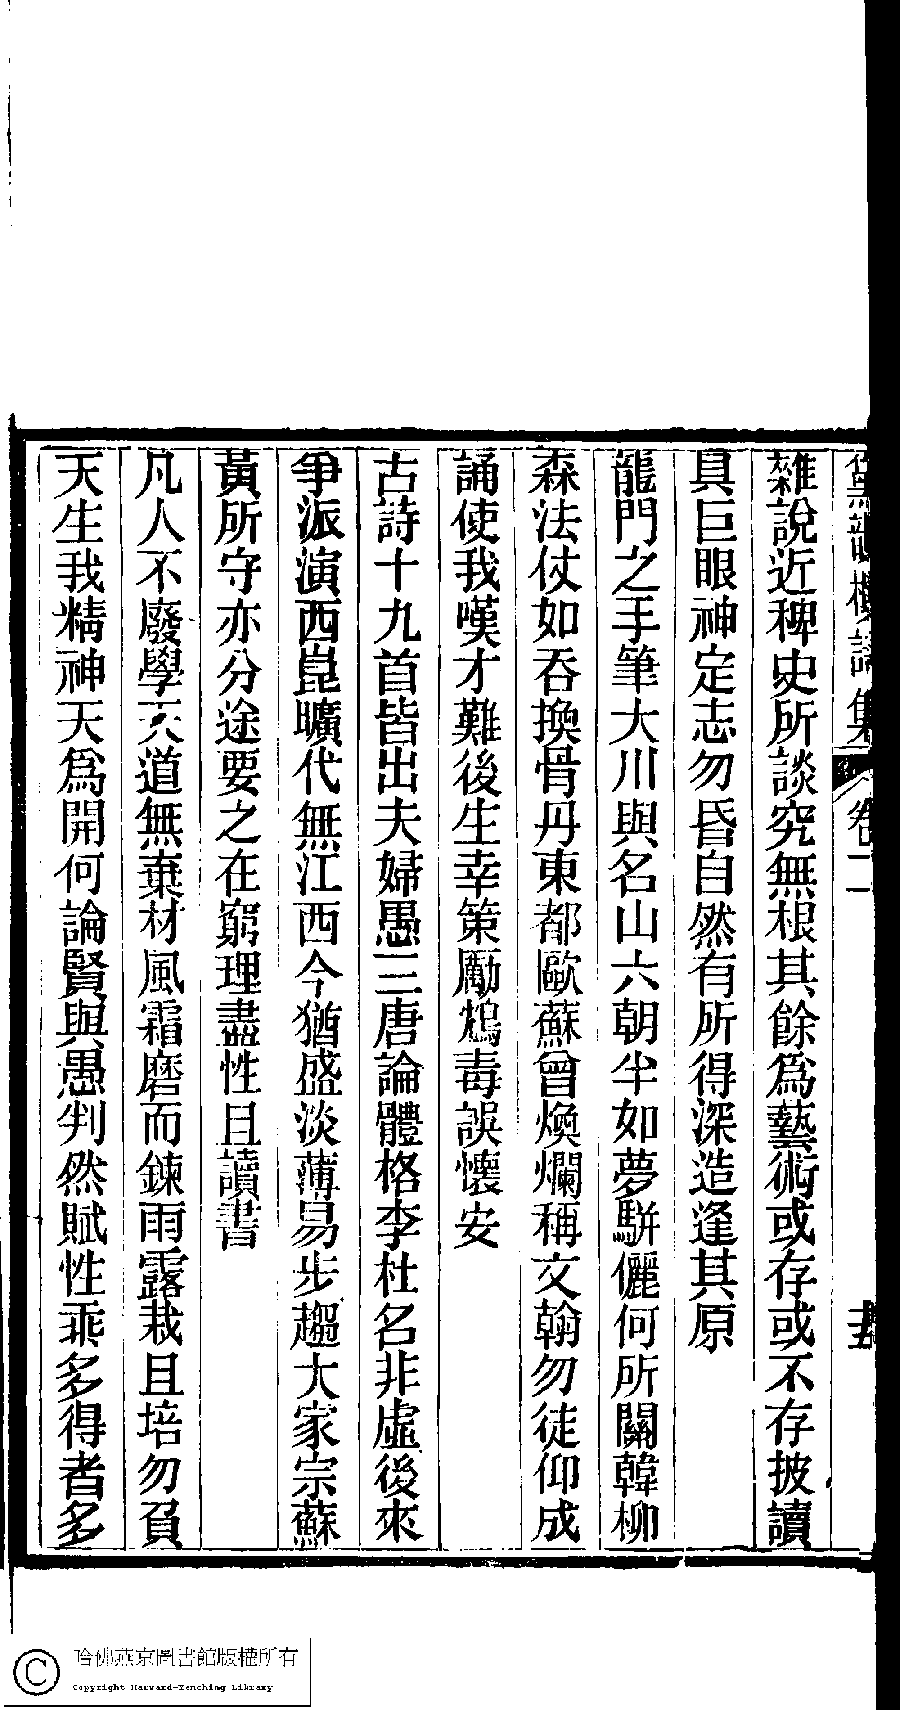 集 卷二
雜說近稗史所談究無根其餘爲藝術或存或不存披讀
具巨眼神定志勿昏自然有所得深造逢其原
龍門之手筆大川與名山六朝半如夢駢儷何所關韓柳
森法仗如吞換骨丹東都歐蘇曾煥爛稱文翰勿徒仰成
誦使我嘆才難後生幸策勵鴆毒誤懷安
古詩十九首皆出夫婦愚三唐論體格李杜名非虛後來
爭派演西崑曠代無江西今猶盛淡薄易步趨大家宗蘇
黃所守亦分途要之在窮理盡性且讀書
凡人不廢學天道無棄材風霜磨而鍊雨露栽且培勿負
天生我精神天爲開何論賢與愚判然賦性乖多得者多
哈佛燕京圖書館版權所有
Copyright Harvard-Yenching Library